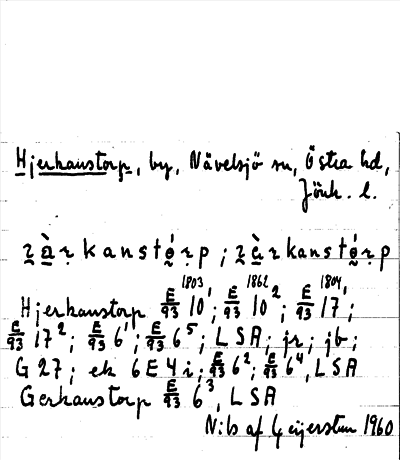 Hjerkanstorp, by, Nävelsjö sn, Östra hd,
Jönk. l.
kanstó̤rp; kanstó̤rp
1803 1862 1804
Hjerkanstorp E/93 10¹; E/93 10²; E/93 17¹;
E/93 17²; E/93 6¹; E/93 6⁵; LSA; jr; jb;
G 27; ek 6E4i; E/93 6²; E/93 6⁴, LSA
Gerkanstorp E/93 6³, LSA
Nils af Geijerstam 1960